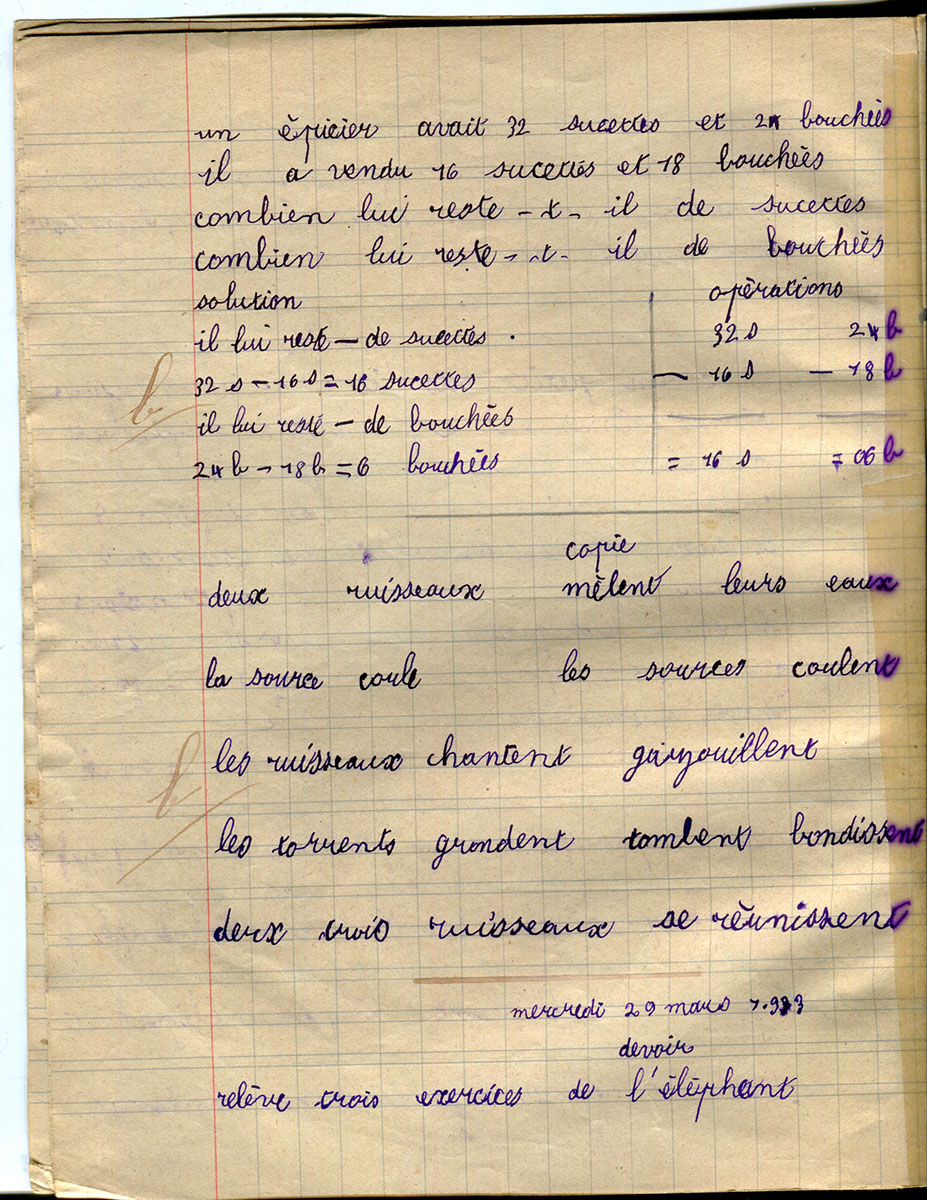 un épicier avait 32 sucettes et 24 bouchées
il a vendu 16 sucettes et 18 bouchées
combien lui reste-t-il de sucettes
combien lui reste-t-il de bouchées
solution opérations
il lui reste – de sucettes. 32 s 24 b
32 s – 16 s = 16 sucettes – 16 s – 18 b
il lui reste – de bouchées
24 b – 18 b = 6 bouchées = 16 s = 06 b
copie
deux ruisseaux mêlent leurs eaux
la source coule les sources coulent
les ruisseaux chantent gargouillent
les torrents grondent tombent bondissent
deux trois ruisseaux se réunissent
mercredi 29 mars 1.933
devoir
relève trois exercices de l'éléphant